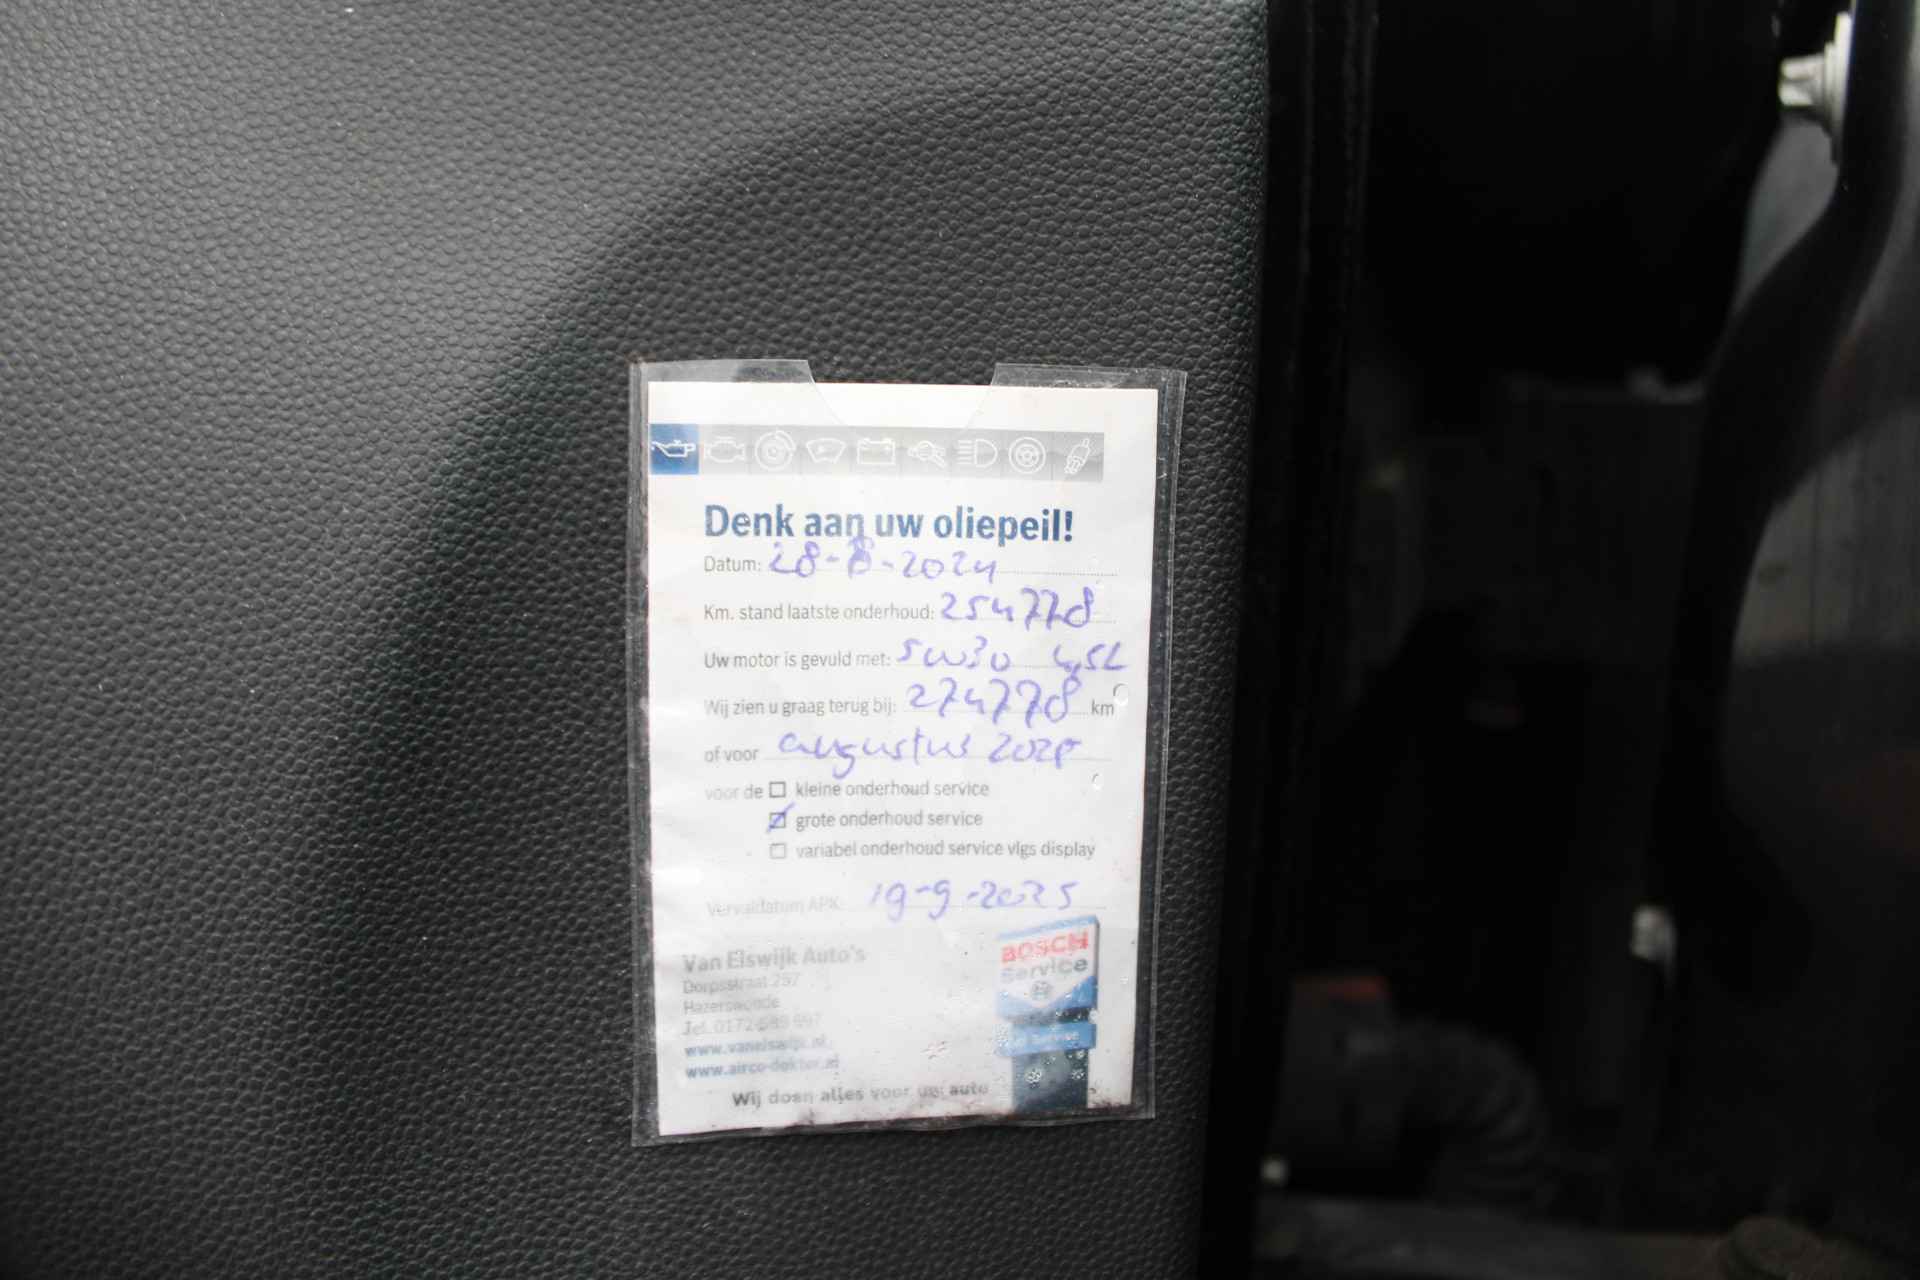 Denk aan uw oliepeil!
Datum: 28-8-2024
Km. stand laatste onderhoud: 254778
Uw motor is gevuld met: 5W30 4,5L
Wij zien u graag terug bij: 274778 km
of voor augustus 2025
voor de kleine onderhoud service
grote onderhoud service
variabel onderhoud service vlgs display
Vervaldatum APK: 19-9-2025
Van Elswijk Auto's
Dorpsstraat 257
Hazerswoude
Tel. 0172
www.vanelswijk.nl
www.airco-dokter.nl
Wij doen alles voor uw auto
BOSCH
Service
Service